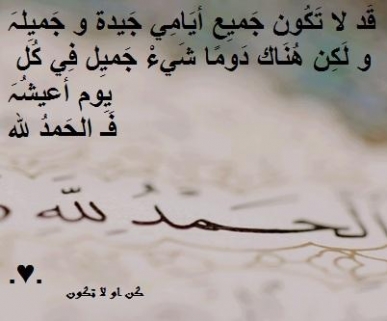 قَد لا تَكُون جَميِع أيَامِي جَيدة و جَميِلہَ
و لَكِن هُنَاك دَومًا شَيءْ جَمِيِل فِي كُل
يِوم أعيشُہَ
فَـ الحَمدُ لله
الحَـمْـدُ لِلّهِ
.♥.
كن او لا تكون